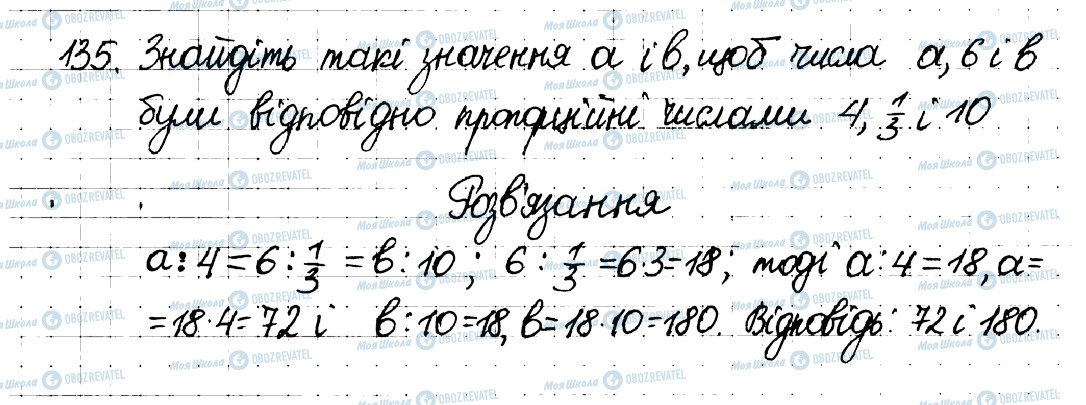 135. Знайдіть такі значення а і в, щоб числа а, 6 і в
були відповідно пропорційні числами 4, 1/3 і 10
Розв'язання
а : 4 = 6 : 1/3 = в : 10 ; 6 : 1/3 = 6·3 = 18; тоді а : 4 = 18, а =
= 18·4 = 72 і в : 10 = 18, в = 18·10 = 180. Відповідь: 72 і 180.